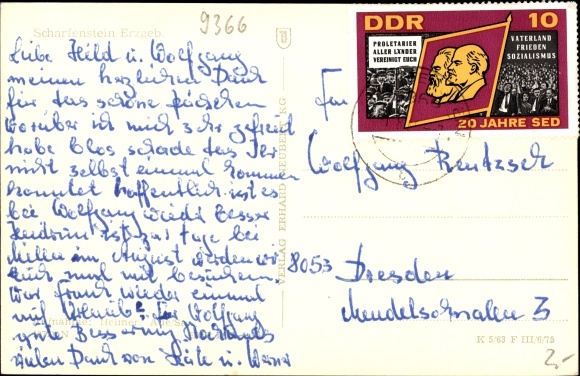 Scharfenstein Erzgeb.
9366
Liebe Hield u. Wolfgang
meinen herzlichen Dank
für das schöne päckchen
worüber ich mich sehr gefreut
habe blos schade das Ihr
nicht selbst einmal kommen
konntet hoffentlich ist es
bei Wolfgang wieder besser
ist zur tage bei
im August werden wir
Euch mal besuchen
war Frank wieder einmal
auf Urlaub für Wolfgang
gute Besserung
vielen Dank von u. Werner
VERLAG ERHARD NEUBERT KG
DDR 10
PROLETARIER
ALLER LÄNDER
VEREINIGT EUCH
VATERLAND
FRIEDEN
SOZIALISMUS
20 JAHRE SED
Fam
Wolfgang Rentzsch
8053 Dresden
3
K 5/63 F III/6/75
2,-